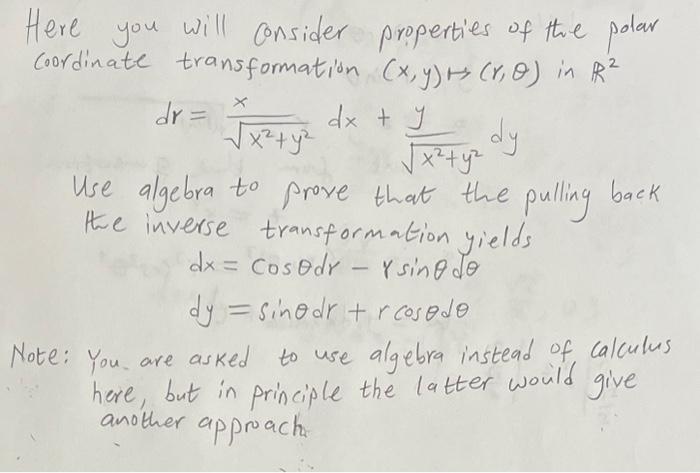 Here you will consider properties of the polar
Coordinate transformation (x,y)↦(r,θ) in ℝ²
dr = x/√(x²+y²) dx + y/√(x²+y²) dy
Use algebra to prove that the pulling back
the inverse transformation yields
dx = cosθdr − rsinθdθ
dy = sinθdr + rcosθdθ
Note: You are asked to use algebra instead of calculus
here, but in principle the latter would give
another approach.